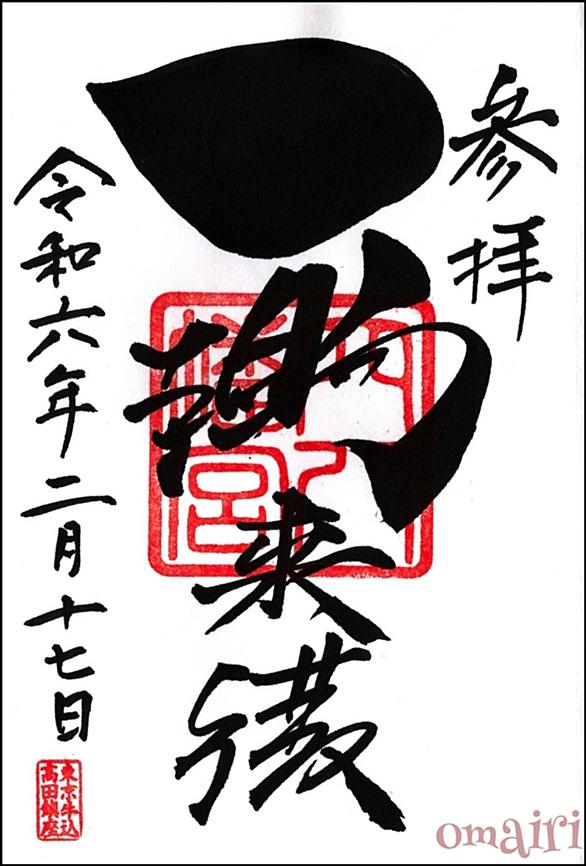 参拝
一陽来復
穴八
幡宮
令和六年二月十七日
東京牛込
高田鎮座
omairi